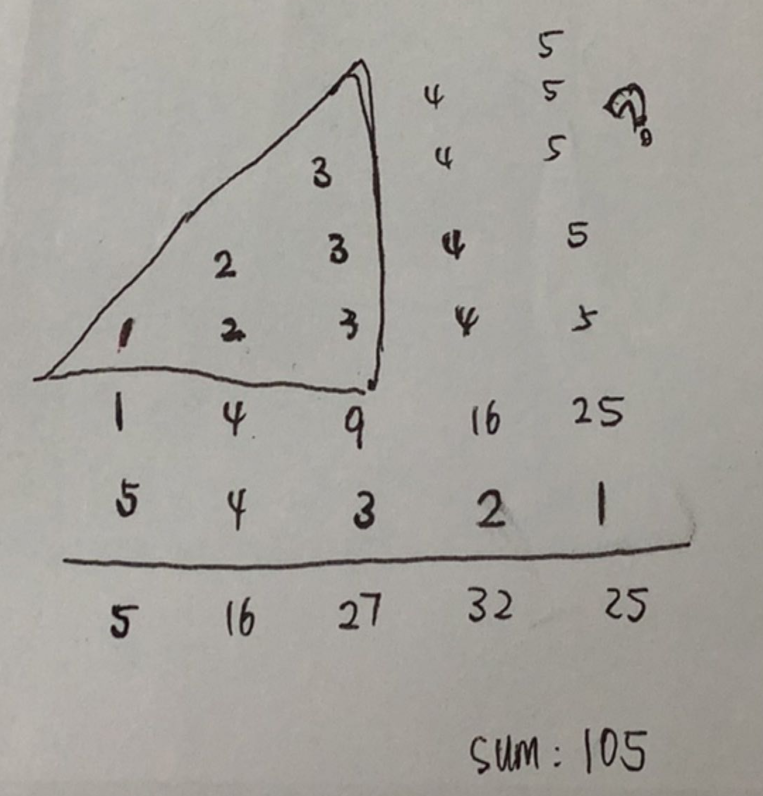 5
4 5
3 4 5
2 3 4 5
1 2 3 4 5
1 4 9 16 25
5 4 3 2 1
5 16 27 32 25
sum: 105